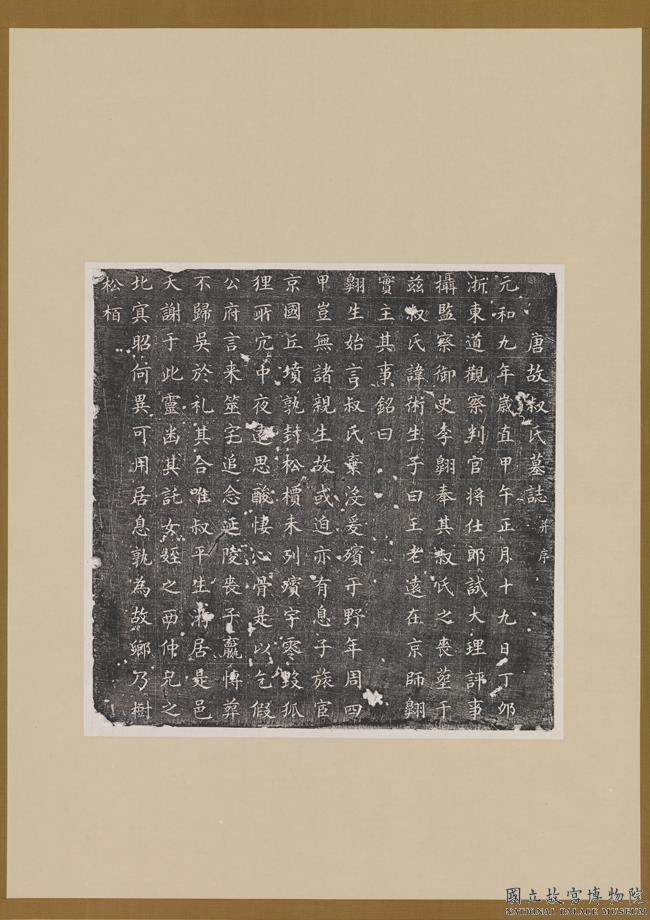 唐故叔氏墓誌 并序
元和九年歲直甲午正月十九日丁卯
浙東道觀察判官將仕郎試大理評事
攝監察御史李翱奉其叔氏之喪塟于
茲叔氏諱術生子曰王老遠在京師翱
實主其事銘曰
翱生始言叔氏棄沒爰殯于野年周四
甲豈無諸親生故或迫亦有息子旅宦
京國丘墳孰封松檟未列殯宇零毀狐
狸所宂中夜遠思酸悽心骨是以乞假
公府言来筮宅追念延陵喪子嬴博葬
不歸吳於礼其合唯叔平生游居是邑
夭謝于此靈幽其託女姪之西仲兄之
北㝠昭何異可用居息孰為故鄉乃樹
松栢
國立故宮博物院
NATIONAL PALACE MUSEUM